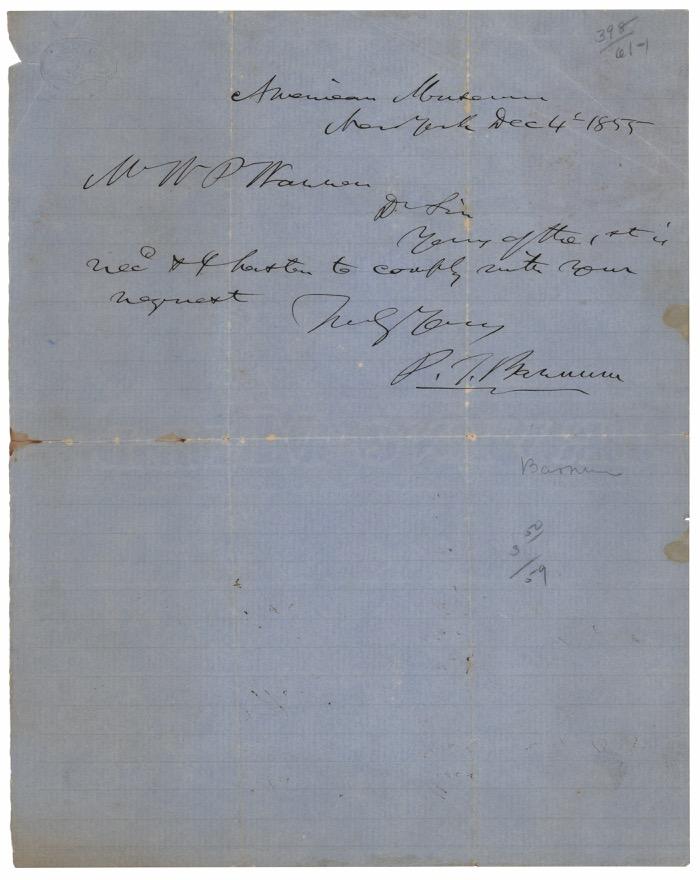 398/61-1
American Museum
New York Dec 4th 1855
Mr W P Warren
Dr Sir
Yours of the 1st is
recd & I hasten to comply with your
request
Truly Yours
P. T. Barnum
Barnum
50
3
/59